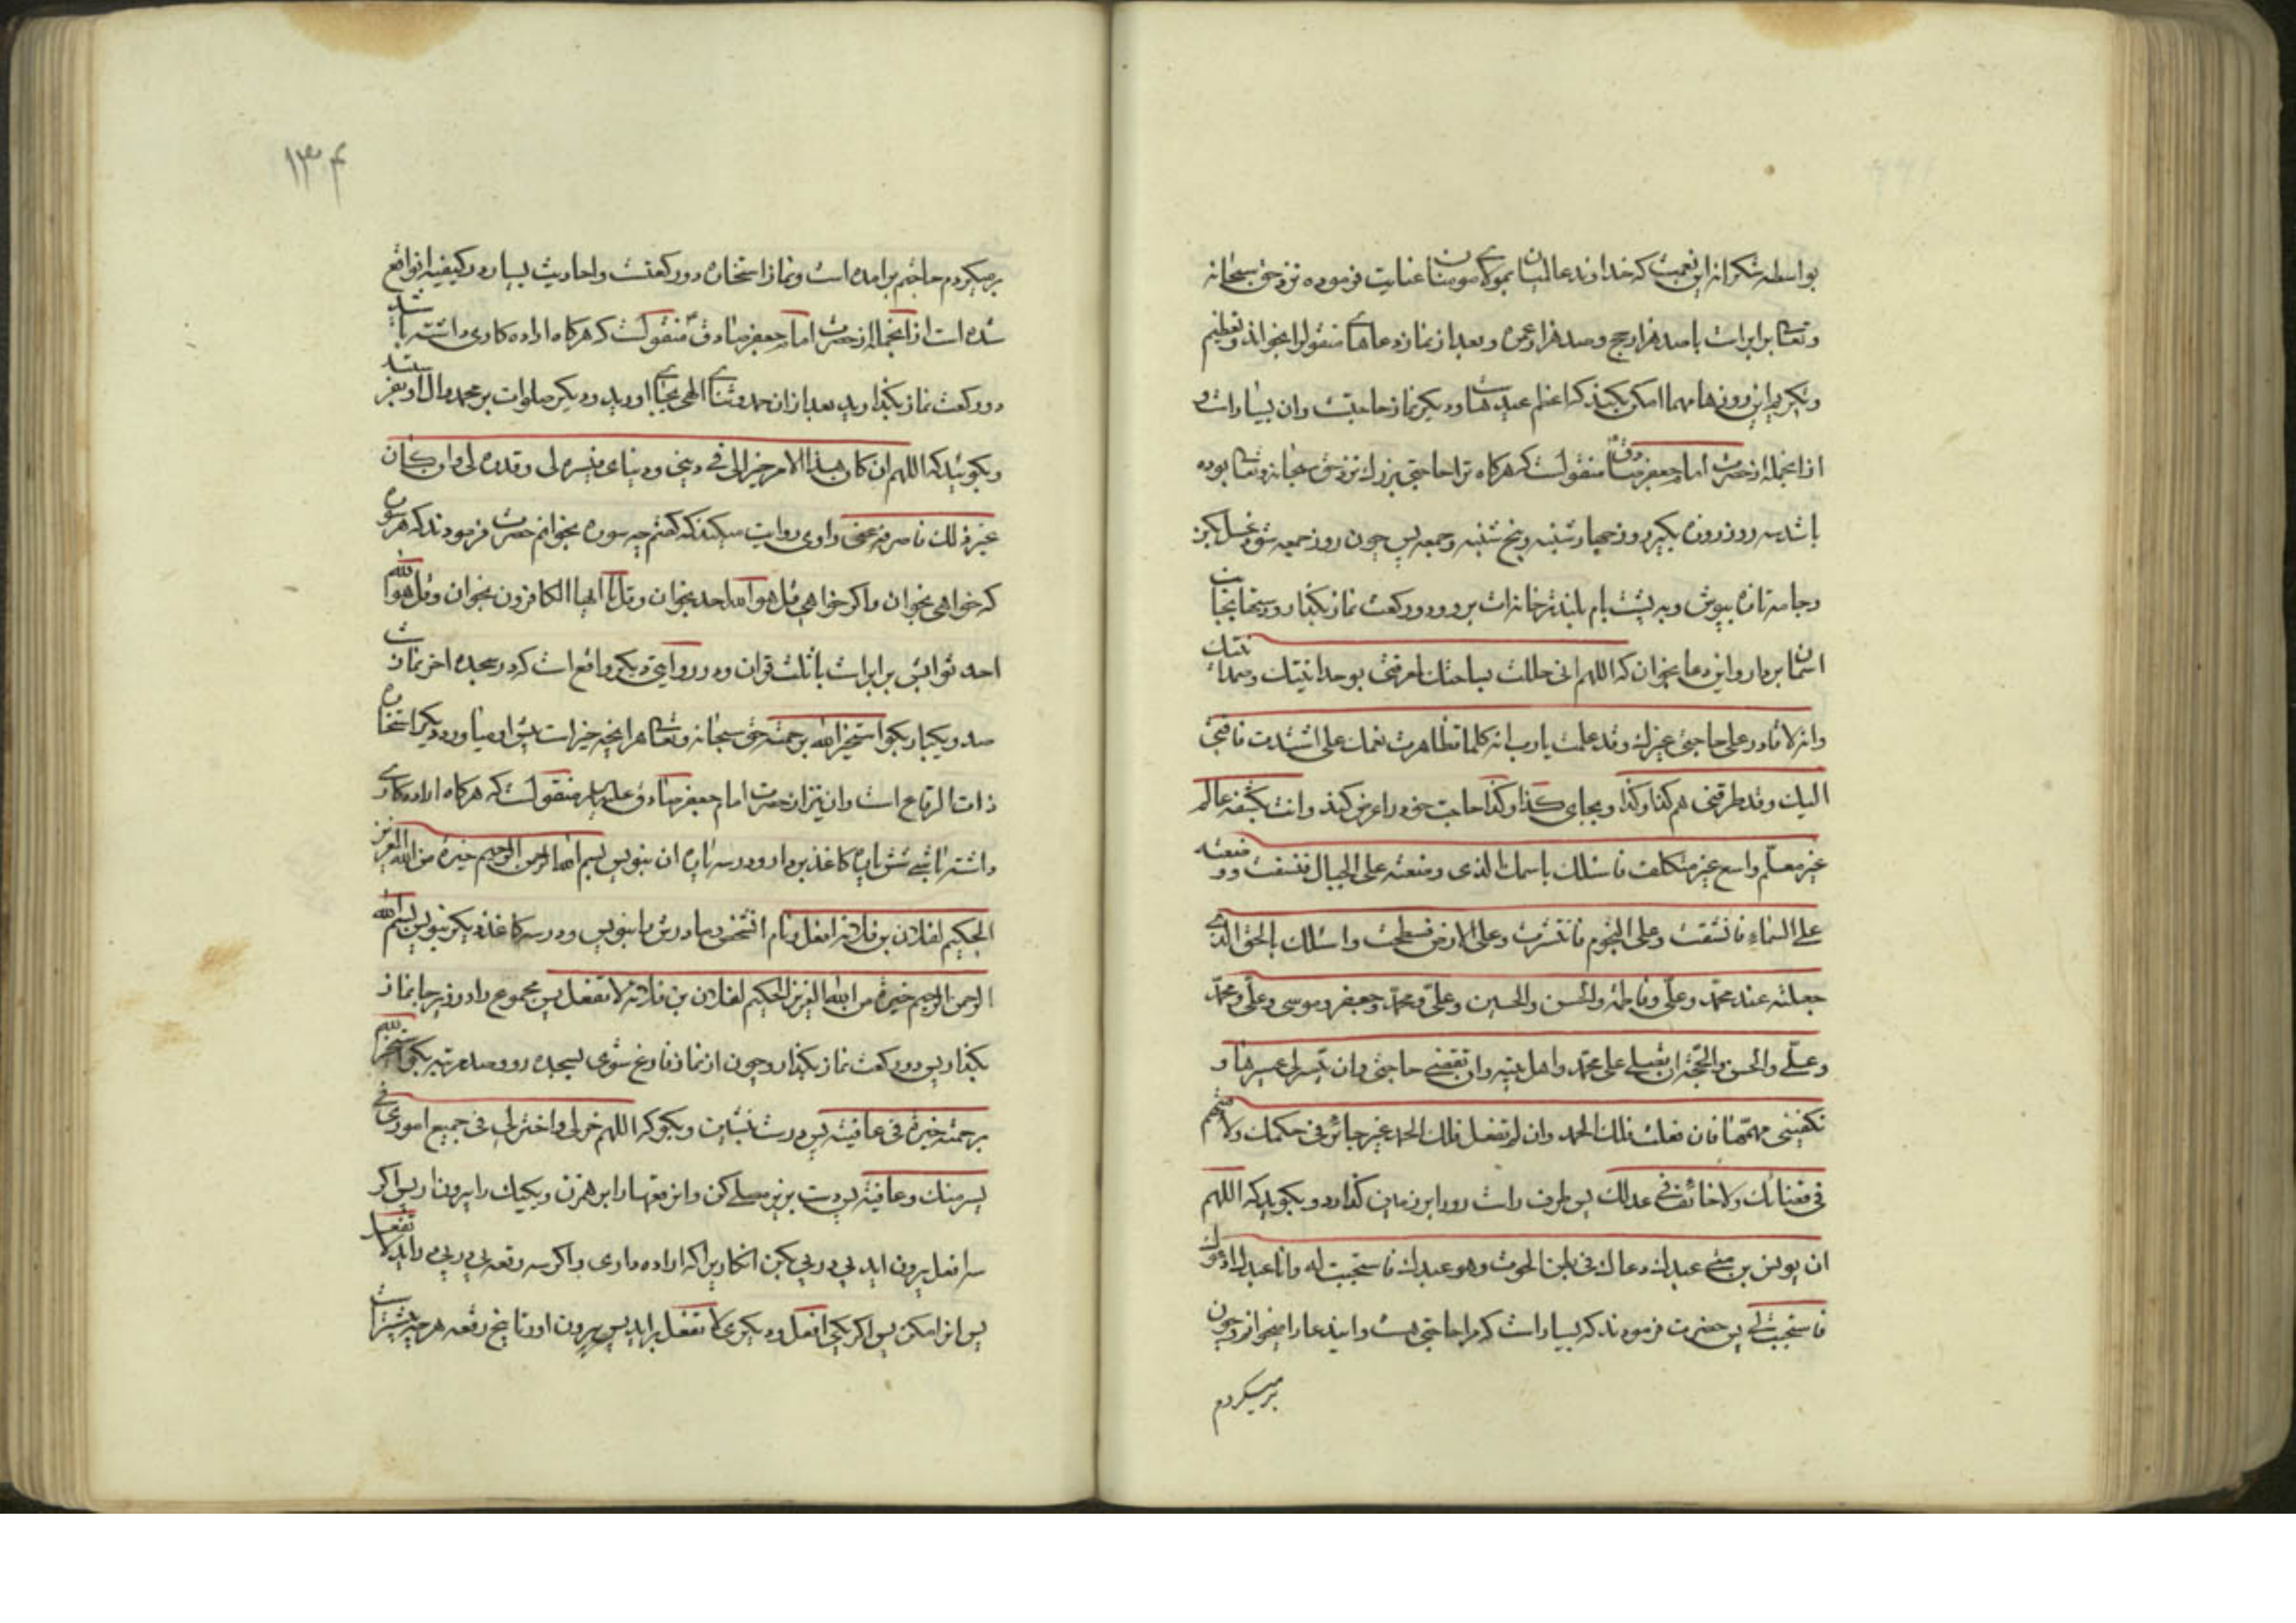 بواسطه شکرانه این نعمت که خداوند عالمیان بمولای مومنان عنایت فرموده نزد حق سبحانه
و تعالی برابر است با صد هزار حج و صد هزار عمره و بعد از نماز دعاهای منقول را بخواند و تعظیم
و تکریم این روزها مهما امکن بکنید که اعظم عیدهاست و دیگر نماز حاجتست وان بسیار است و
از انجمله از حضرت امام جعفر صادق منقولست که هرکاه ترا حاجتی بزرك نزد حق سبحانه و تعالی بوده
باشد سه روز روزه بکیر روز چهارشنبه و پنج شنبه و جمعه پس چون روز جمعه شود غسل بکن
و جامه تازه بپوش و به پشت بام بلندتر خانه‌ات برو و دو رکعت نماز بکذار و دستها بجانب
اسمان بردار و این دعا بخوان که اللهم انی حللت بساحتك لمعرفتی بوحدانیتك وصمدانیتك
وانه لا قادر علی حاجتی غیرك وقد علمت یا رب انه کلما تظاهرت نعمك علی اشتدت فاقتی
الیك وقد طرقنی هم کذا وکذا و بجای کذا وکذا حاجت خود را عرض کند وانت بکشفه عالم
غیر معلم واسع غیر متکلف فاسئلك باسمك الذی وضعته علی الجبال فنسفت ووضعته
علی السماء فانشقت وعلی النجوم فانتثرت وعلی الارض فسطحت واسئلك بالحق الذی
جعلته عند محمد وعلی وفاطمة والحسن والحسین وعلی ومحمد وجعفر وموسی وعلی ومحمد
وعلی والحسن والحجة ان تصلی علی محمد واهل بیته وان تقضی حاجتی وان تیسر لی عسرها و
تکفینی مهمتها فان فعلت فلك الحمد وان لم تفعل فلك الحمد غیر جائر فی حکمك ولا متهم
فی قضائك ولا خائف فی عدلك پس طرف راست رو را بر زمین کذارد و بکوید که اللهم
ان یونس بن متی عبدك دعاك فی بطن الحوت وهو عبدك فاستجبت له وانا عبدك ادعوك
فاستجب لی پس حضرت فرمودند که بسیار است که مرا حاجتی هست و ایندعا را میخوانم و چون
برمیکردم
۱۳۴
برمیکردم حاجتم برامده است و نماز استخاره دو رکعتست و احادیث بسیار در کیفیه ان واقع
شده است از انجمله از حضرت امام جعفر صادق منقولست که هرکاه اراده کاری داشته باشد
دو رکعت نماز بکذارید بعد از ان حمد و ثنای الهی بجای اورید و دیکر صلوات بر محمد وال او بفرستید
و بکوئید که اللهم ان کان هذا الامر خیرا لی فی دینی ودنیای فیسره لی وقدره لی وان کان
غیر ذلك فاصرفه عنی راوی روایت میکند که کفتم چه سوره بخوانم حضرت فرمودند که هر سوره
که خواهی بخوان و اکر خواهی قل هو الله احد بخوان و قل یا ایها الکافرون بخوان و قل هو الله
احد ثوابش برابر است با ثلث قران و در روایتی دیکر واقع است که در سجده اخر نماز است
صد و یکبار بکو استخیر الله برحمته حق سبحانه و تعالی هر انچه خیر است پیش او میاورد و دیکر استخاره
ذات الرقاع است وان نیز از حضرت امام جعفر صادق علیه السلام منقولست که هرکاه اراده کاری
داشته باشی شش پاره کاغذ بردار و در سه پاره ان بنویس بسم الله الرحمن الرحیم خیرة من الله العزیز
الحکیم لفلان بن فلانه افعل و نام انشخص و مادرش را بنویس و در سه کاغذ دیکر بنویس بسم الله
الرحمن الرحیم خیرة من الله العزیز الحکیم لفلان بن فلانه لا تفعل پس مجموع را در زیر جا نماز
بکذار پس دو رکعت نماز بکذار و چون از نماز فارغ شوی بسجده رو و صد مرتبه بکو استخیر الله
برحمته خیرة فی عافیته پس درست بنشین و بکو که اللهم خر لی واختر لی فی جمیع اموری فی
یسر منك وعافیة پس دست بزیر مصلی کن و این رقعها را بر هم زن و یکیك را بیرون ار پس اکر
سه افعل بیرون اید پی در پی بکن انکار یرا که اراده داری و اکر سه رقعه پی در پی در اید لا تفعل
پس انرا مکن پس اکر یکی افعل و دیکری لا تفعل براید پس بیرون اور تا پنج رقعه هر چه بیشتر است